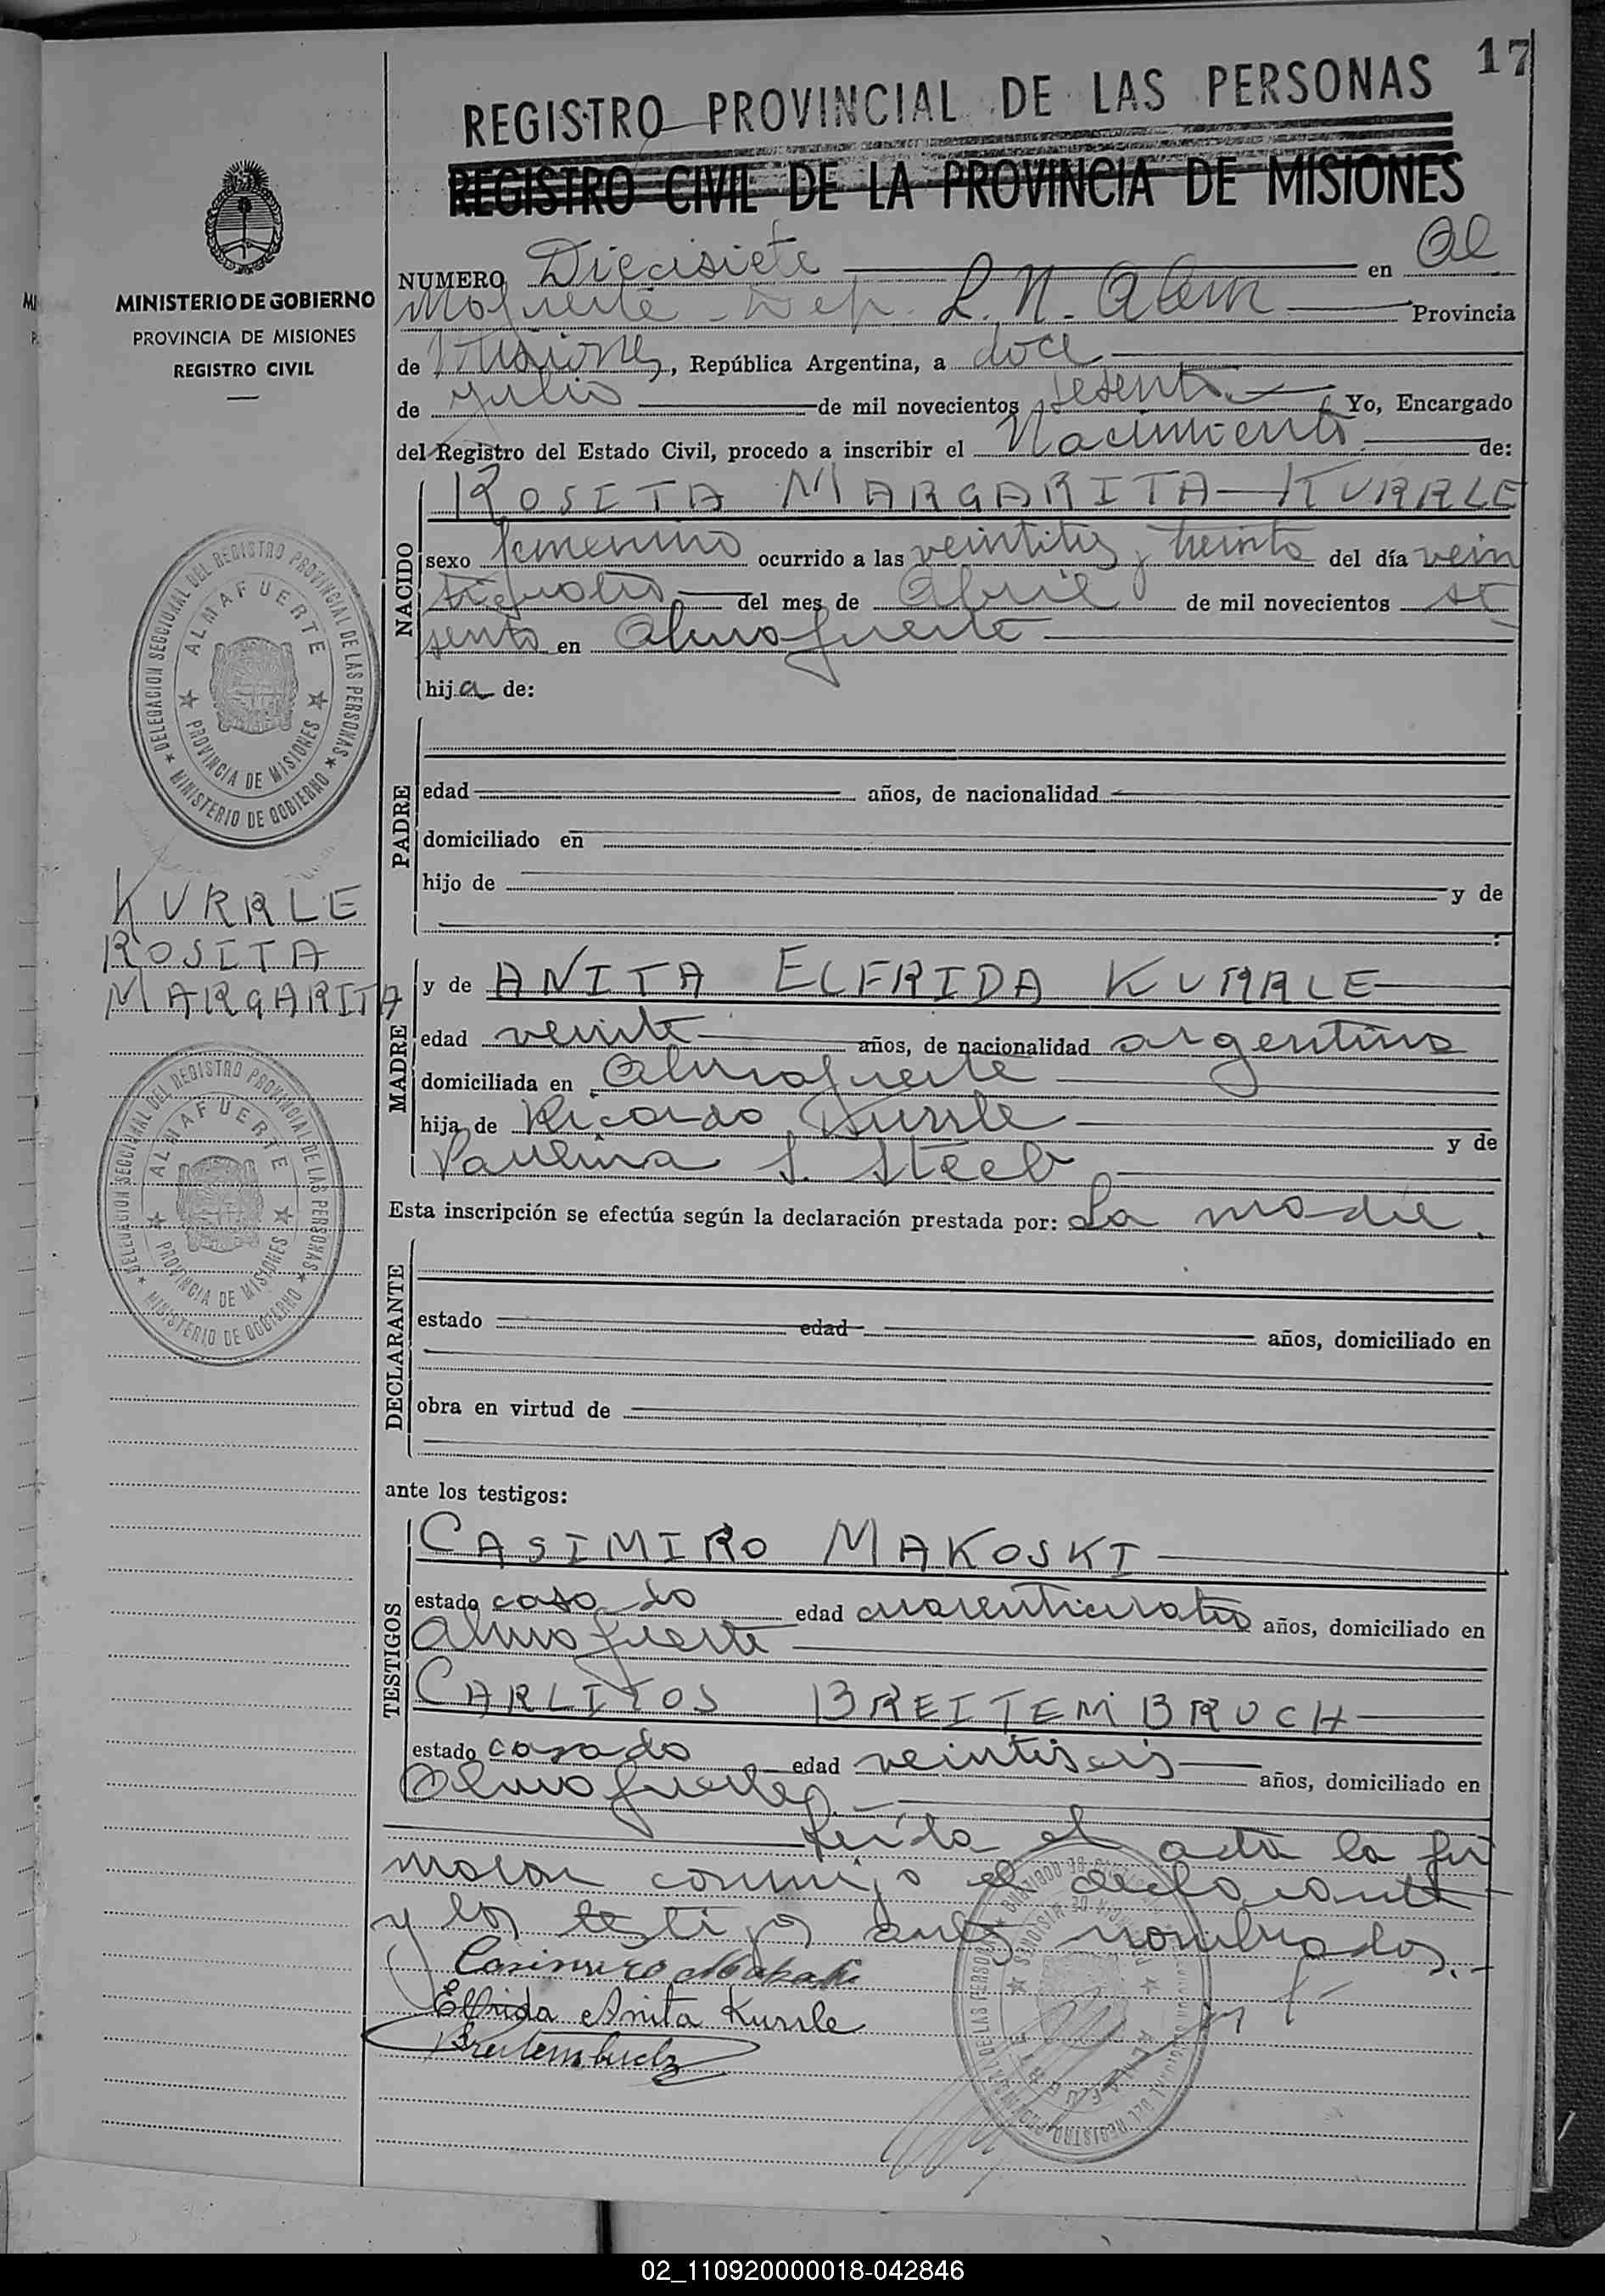 17
REGISTRO PROVINCIAL DE LAS PERSONAS
REGISTRO CIVIL DE LA PROVINCIA DE MISIONES
MINISTERIO DE GOBIERNO
PROVINCIA DE MISIONES
REGISTRO CIVIL
NUMERO Diecisiete en Al
mafuerte - Dep. L. N. Alem Provincia
de Misiones, República Argentina, a doce
de julio de mil novecientos sesenta Yo, Encargado
del Registro del Estado Civil, procedo a inscribir el Nacimiento de:
NACIDO
ROSITA MARGARITA KURRLE
sexo femenino ocurrido a las veintitres y treinta del día vein
ticuatro del mes de Abril de mil novecientos se
senta en Almafuerte
hija de:
DELEGACION SECCIONAL DEL REGISTRO PROVINCIAL DE LAS PERSONAS
ALMAFUERTE
PROVINCIA DE MISIONES
MINISTERIO DE GOBIERNO
PADRE
edad años, de nacionalidad
domiciliado en
hijo de y de
KURRLE
ROSITA
MARGARITA
MADRE
y de ANITA ELFRIDA KURRLE
edad veinte años, de nacionalidad argentina
domiciliada en Almafuerte
hija de Ricardo Kurrle y de
Paulina S. Steeb
DELEGACION SECCIONAL DEL REGISTRO PROVINCIAL DE LAS PERSONAS
ALMAFUERTE
PROVINCIA DE MISIONES
MINISTERIO DE GOBIERNO
Esta inscripción se efectúa según la declaración prestada por: La madre.
DECLARANTE
estado edad años, domiciliado en
obra en virtud de
ante los testigos:
TESTIGOS
CASIMIRO MAKOSKI
estado casado edad cuarenticuatro años, domiciliado en
Almafuerte
CARLITOS BREITEMBRUCH
estado casado edad veintiseis años, domiciliado en
Almafuerte
Leída el acta la fir
maron conmigo el declarante
y los testigos antes nombrados.-
Casimiro Makoski
Elfrida Anita Kurrle
Breitembuch
02_110920000018-042846